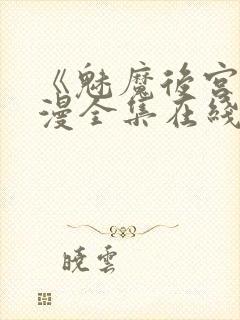 《魅魔後宮
漫全集在綫
曉雲